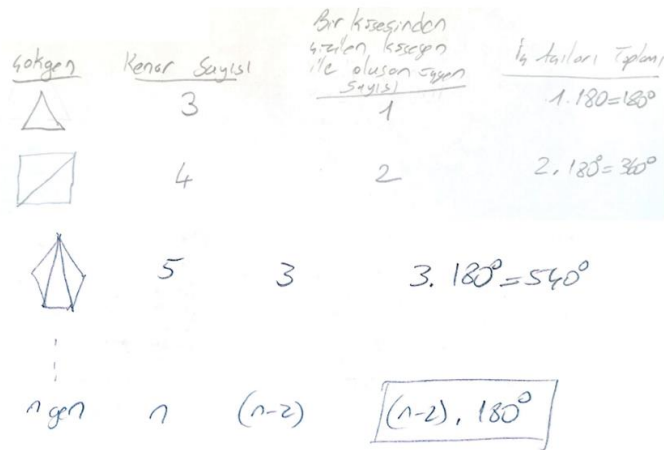 Çokgen Kenar Sayısı Bir köşesinden çizilen köşegen ile oluşan üçgen sayısı İç açıları Toplamı
3 1 1.180=180°
4 2 2.180°=360°
5 3 3.180°=540°
n gen n (n-2) (n-2).180°